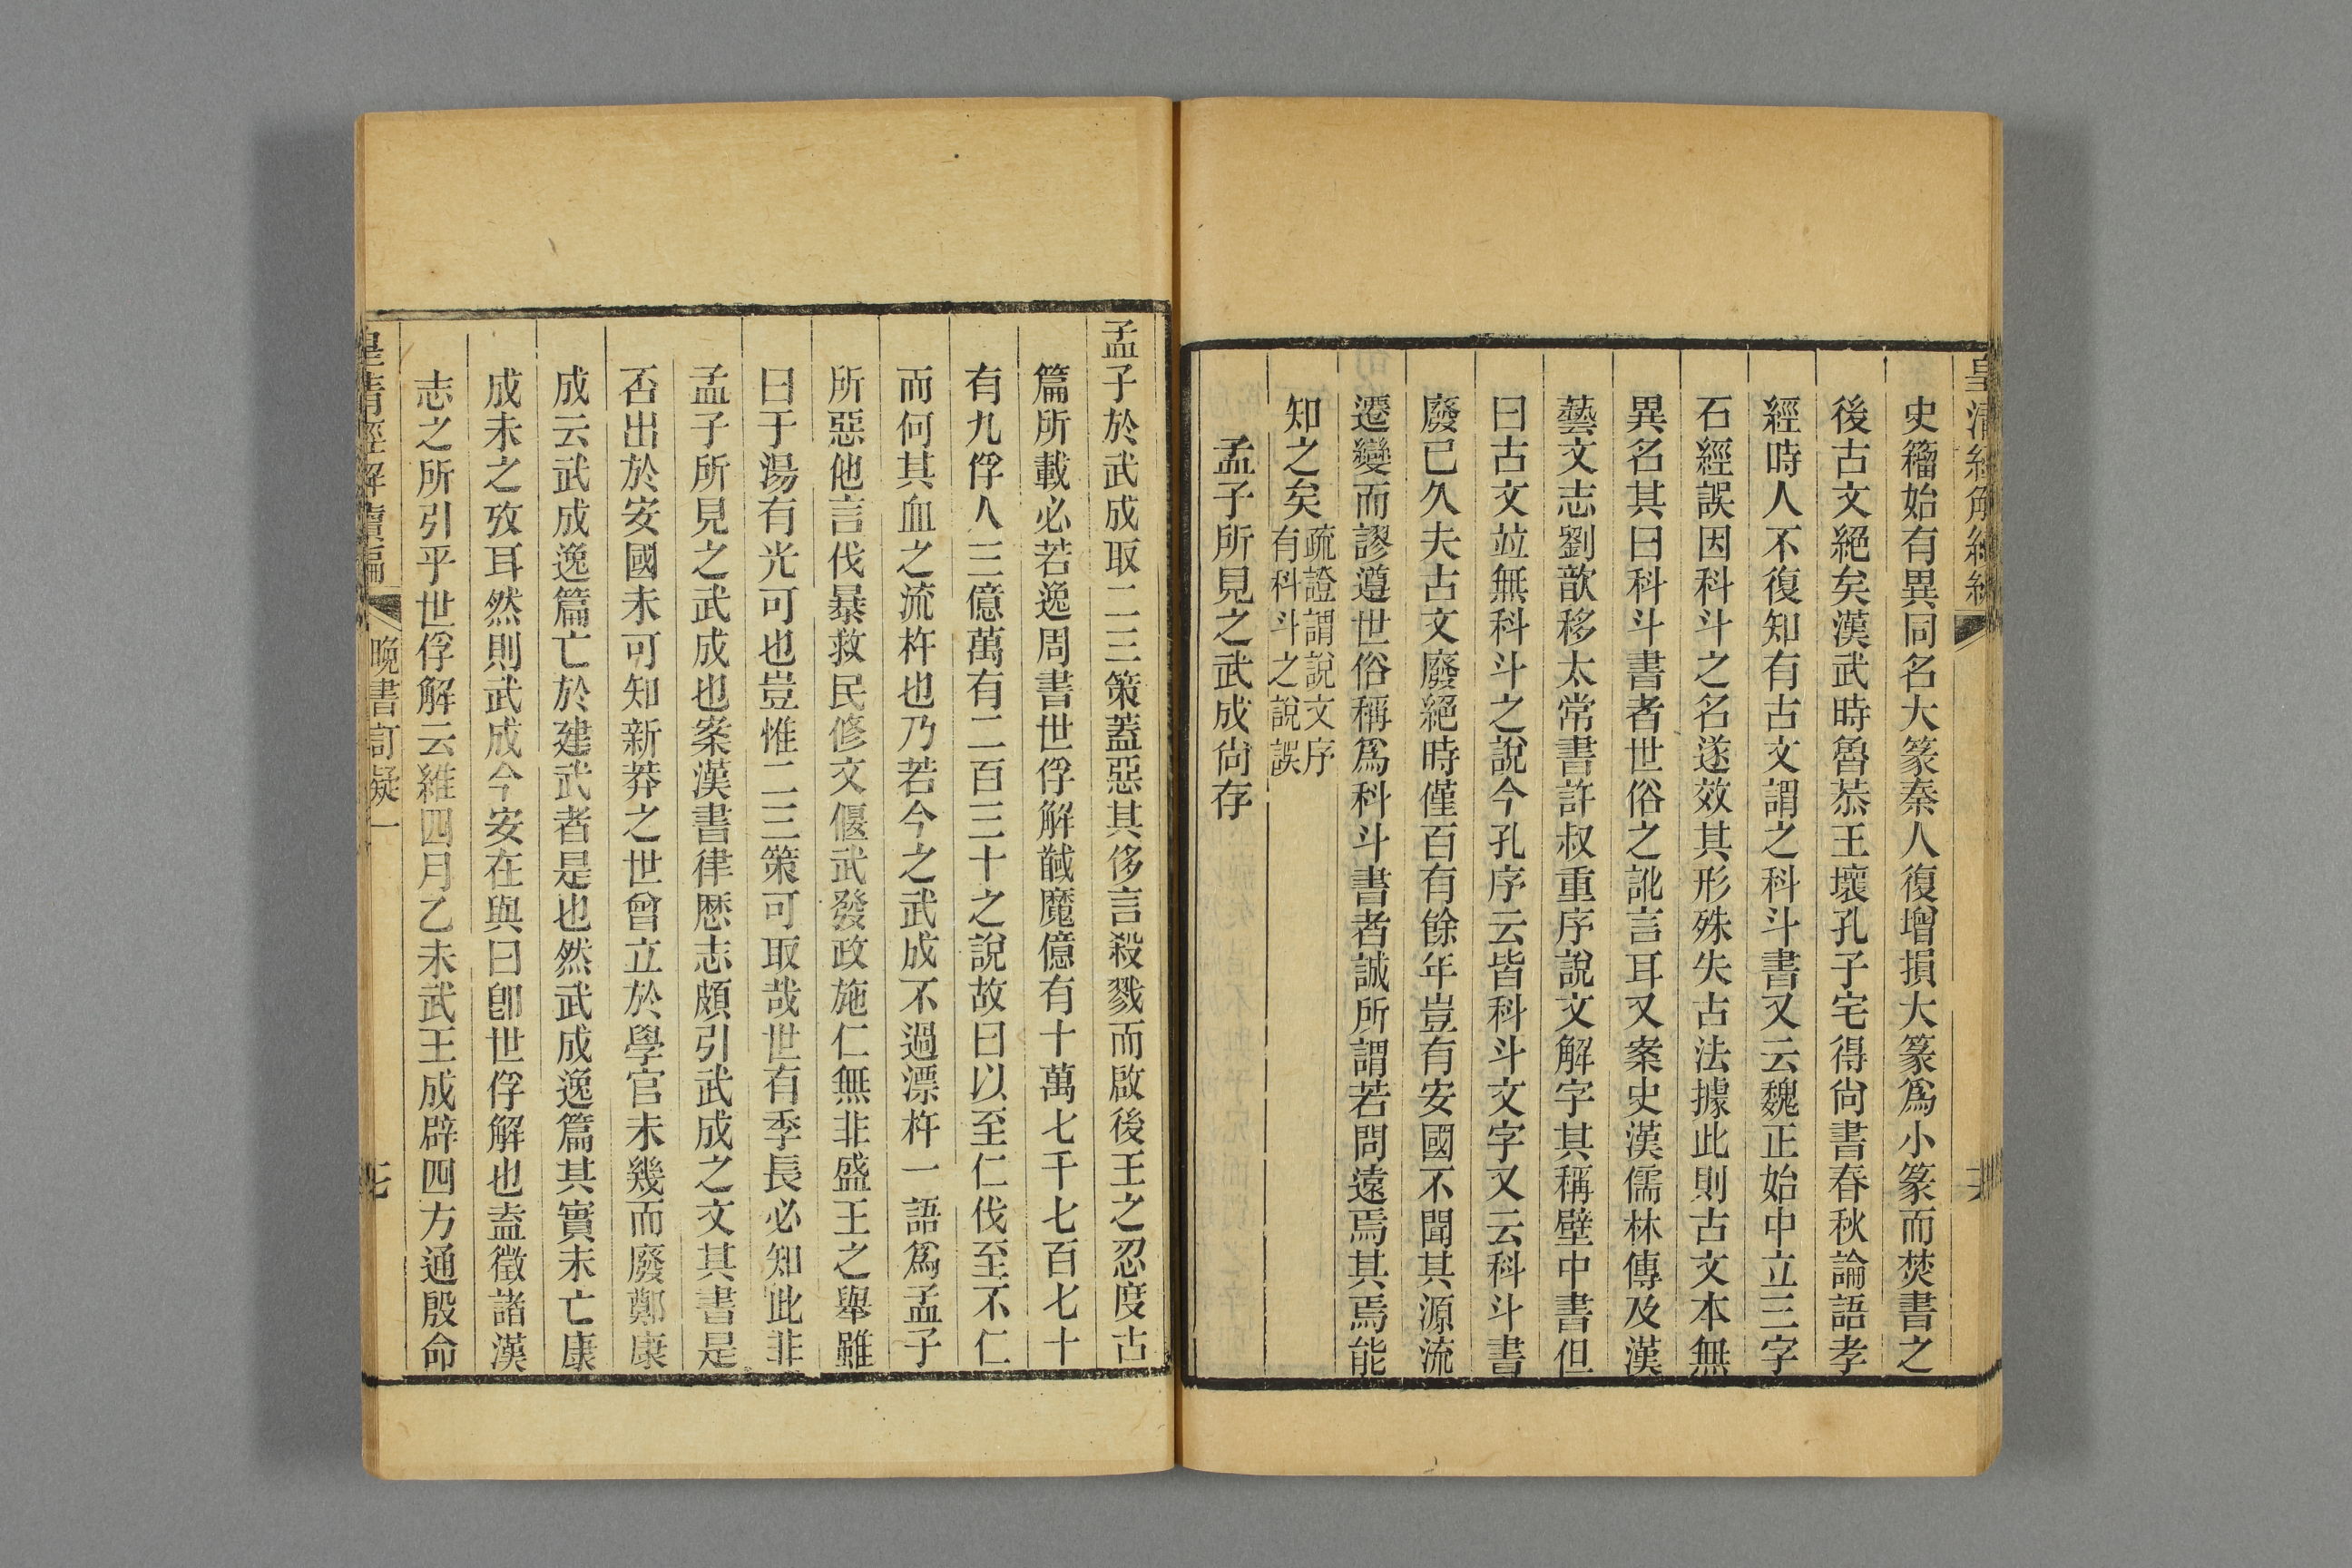 史籀始有異同名大篆秦人復增損大篆爲小篆而焚書之
後古文絕矣漢武時魯恭王壞孔子宅得尙書春秋論語孝
經時人不復知有古文謂之科斗書又云魏正始中立三字
石經誤因科斗之名遂效其形殊失古法據此則古文本無
異名其曰科斗書者世俗之訛言耳又案史漢儒林傳及漢
藝文志劉歆移太常書許叔重序說文解字其稱壁中書但
曰古文竝無科斗之說今孔序云皆科斗文字又云科斗書
廢已久夫古文廢絕時僅百有餘年豈有安國不聞其源流
遷變而謬遵世俗稱爲科斗書者誠所謂若問遠焉其焉能
知之矣疏證謂說文序
有科斗之說誤
孟子所見之武成尙存
孟子於武成取二三策蓋惡其侈言殺戮而啟後王之忍度古
篇所載必若逸周書世俘解馘魔億有十萬七千七百七十
有九俘人三億萬有二百三十之說故曰以至仁伐至不仁
而何其血之流杵也乃若今之武成不過漂杵一語爲孟子
所惡他言伐暴救民修文偃武發政施仁無非盛王之舉雖
曰于湯有光可也豈惟二三策可取哉世有季長必知此非
孟子所見之武成也案漢書律歷志頗引武成之文其書是
否出於安國未可知新莽之世曾立於學官未幾而廢鄭康
成云武成逸篇亡於建武者是也然武成逸篇其實未亡康
成未之攷耳然則武成今安在與曰卽世俘解也盍徵諸漢
志之所引乎世俘解云維四月乙未武王成辟四方通殷命
皇清經解續編
晚書訂疑一